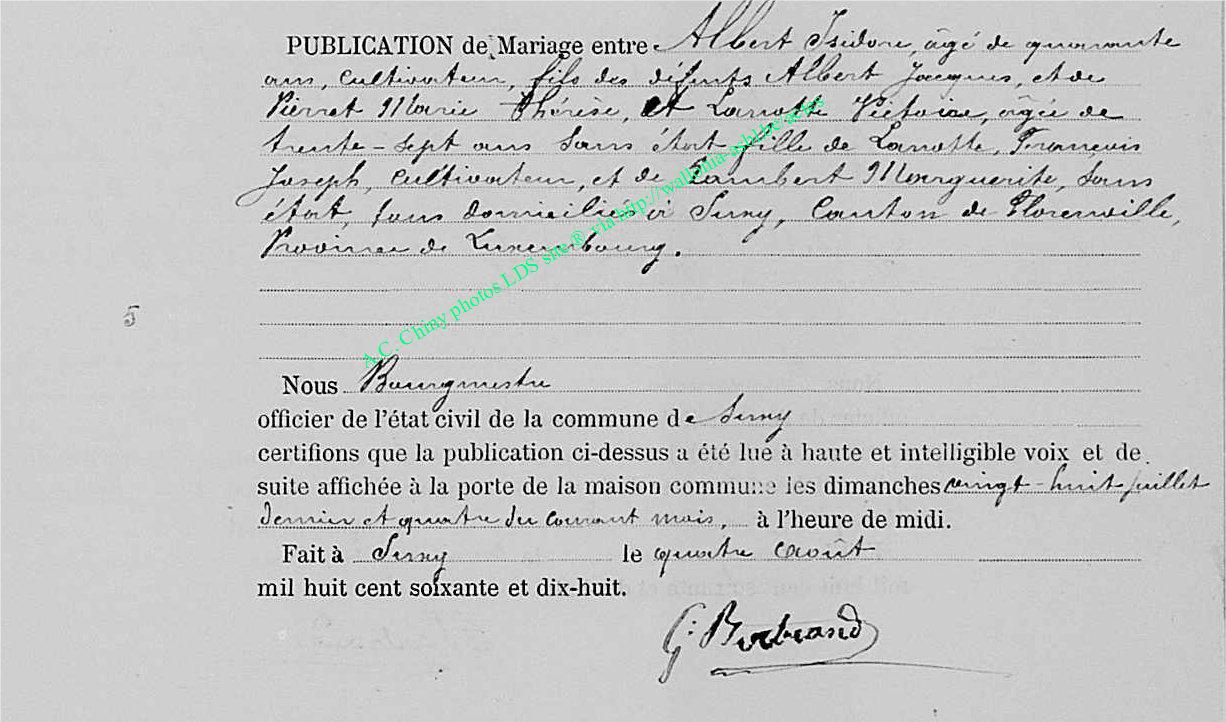 PUBLICATION de Mariage entre Albert Isidore, âgé de quarante
ans, cultivateur, fils des défunts Albert Jacques, et de
Pierret Marie Thérèse, et Lanotte Victoire, âgée de
trente-sept ans sans état fille de Lanotte, François
Joseph, cultivateur, et de Lambert Marguerite, sans
état, tous domiciliés à Suxy, Canton de Florenville,
Province de Luxembourg.
A.C. Chiny photos LDS site® via http://wallonia-asbl.be/actes
5
Nous Bourgmestre
officier de l'état civil de la commune de Suxy
certifions que la publication ci-dessus a été lue à haute et intelligible voix et de
suite affichée à la porte de la maison commune les dimanches vingt-huit juillet
dernier et quatre du courant mois, à l'heure de midi.
Fait à Suxy le quatre août
mil huit cent soixante et dix-huit.
G. Bertrand